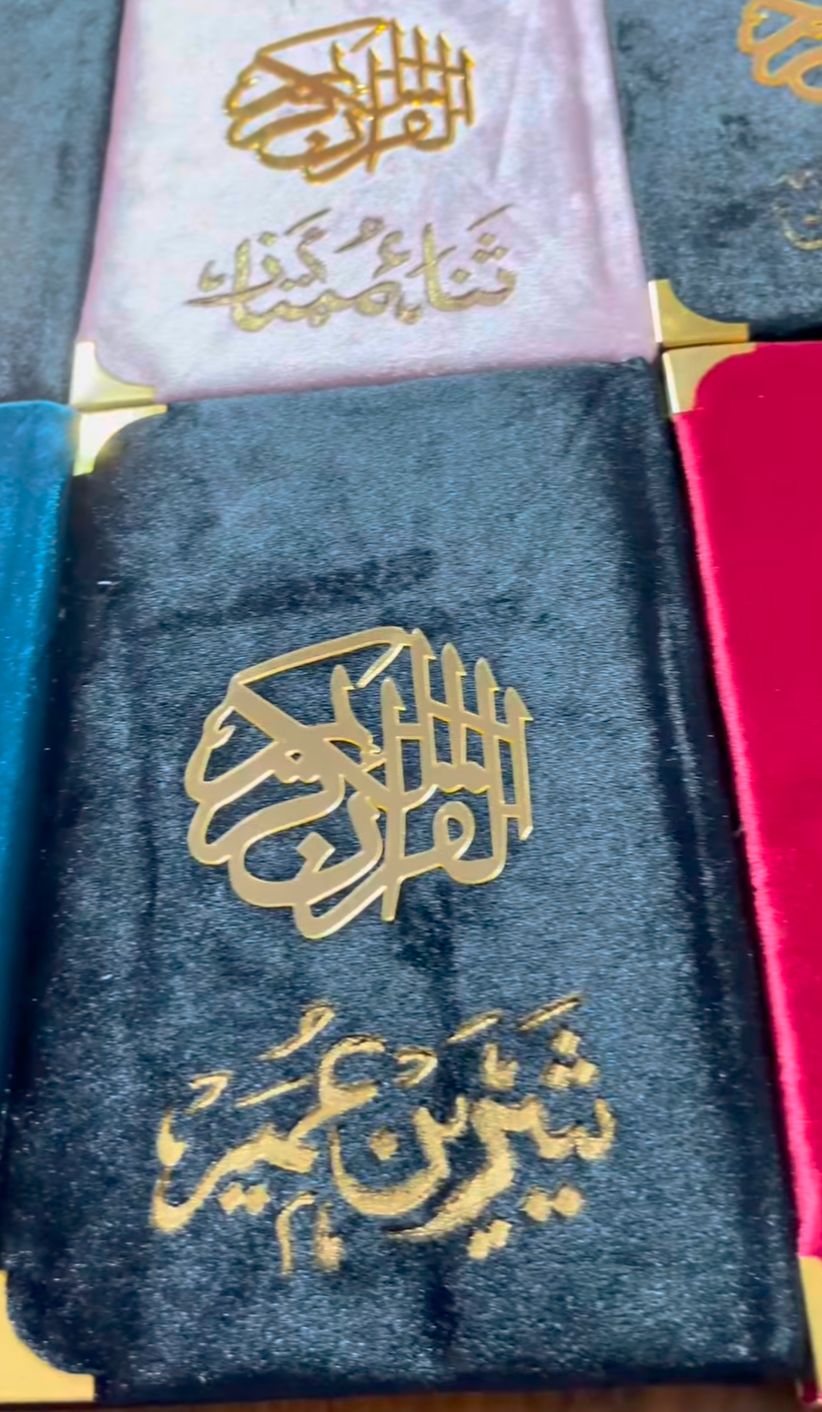 القرآن الكريم
ثناء ممتاز
القرآن الكريم
شیرین عمیر